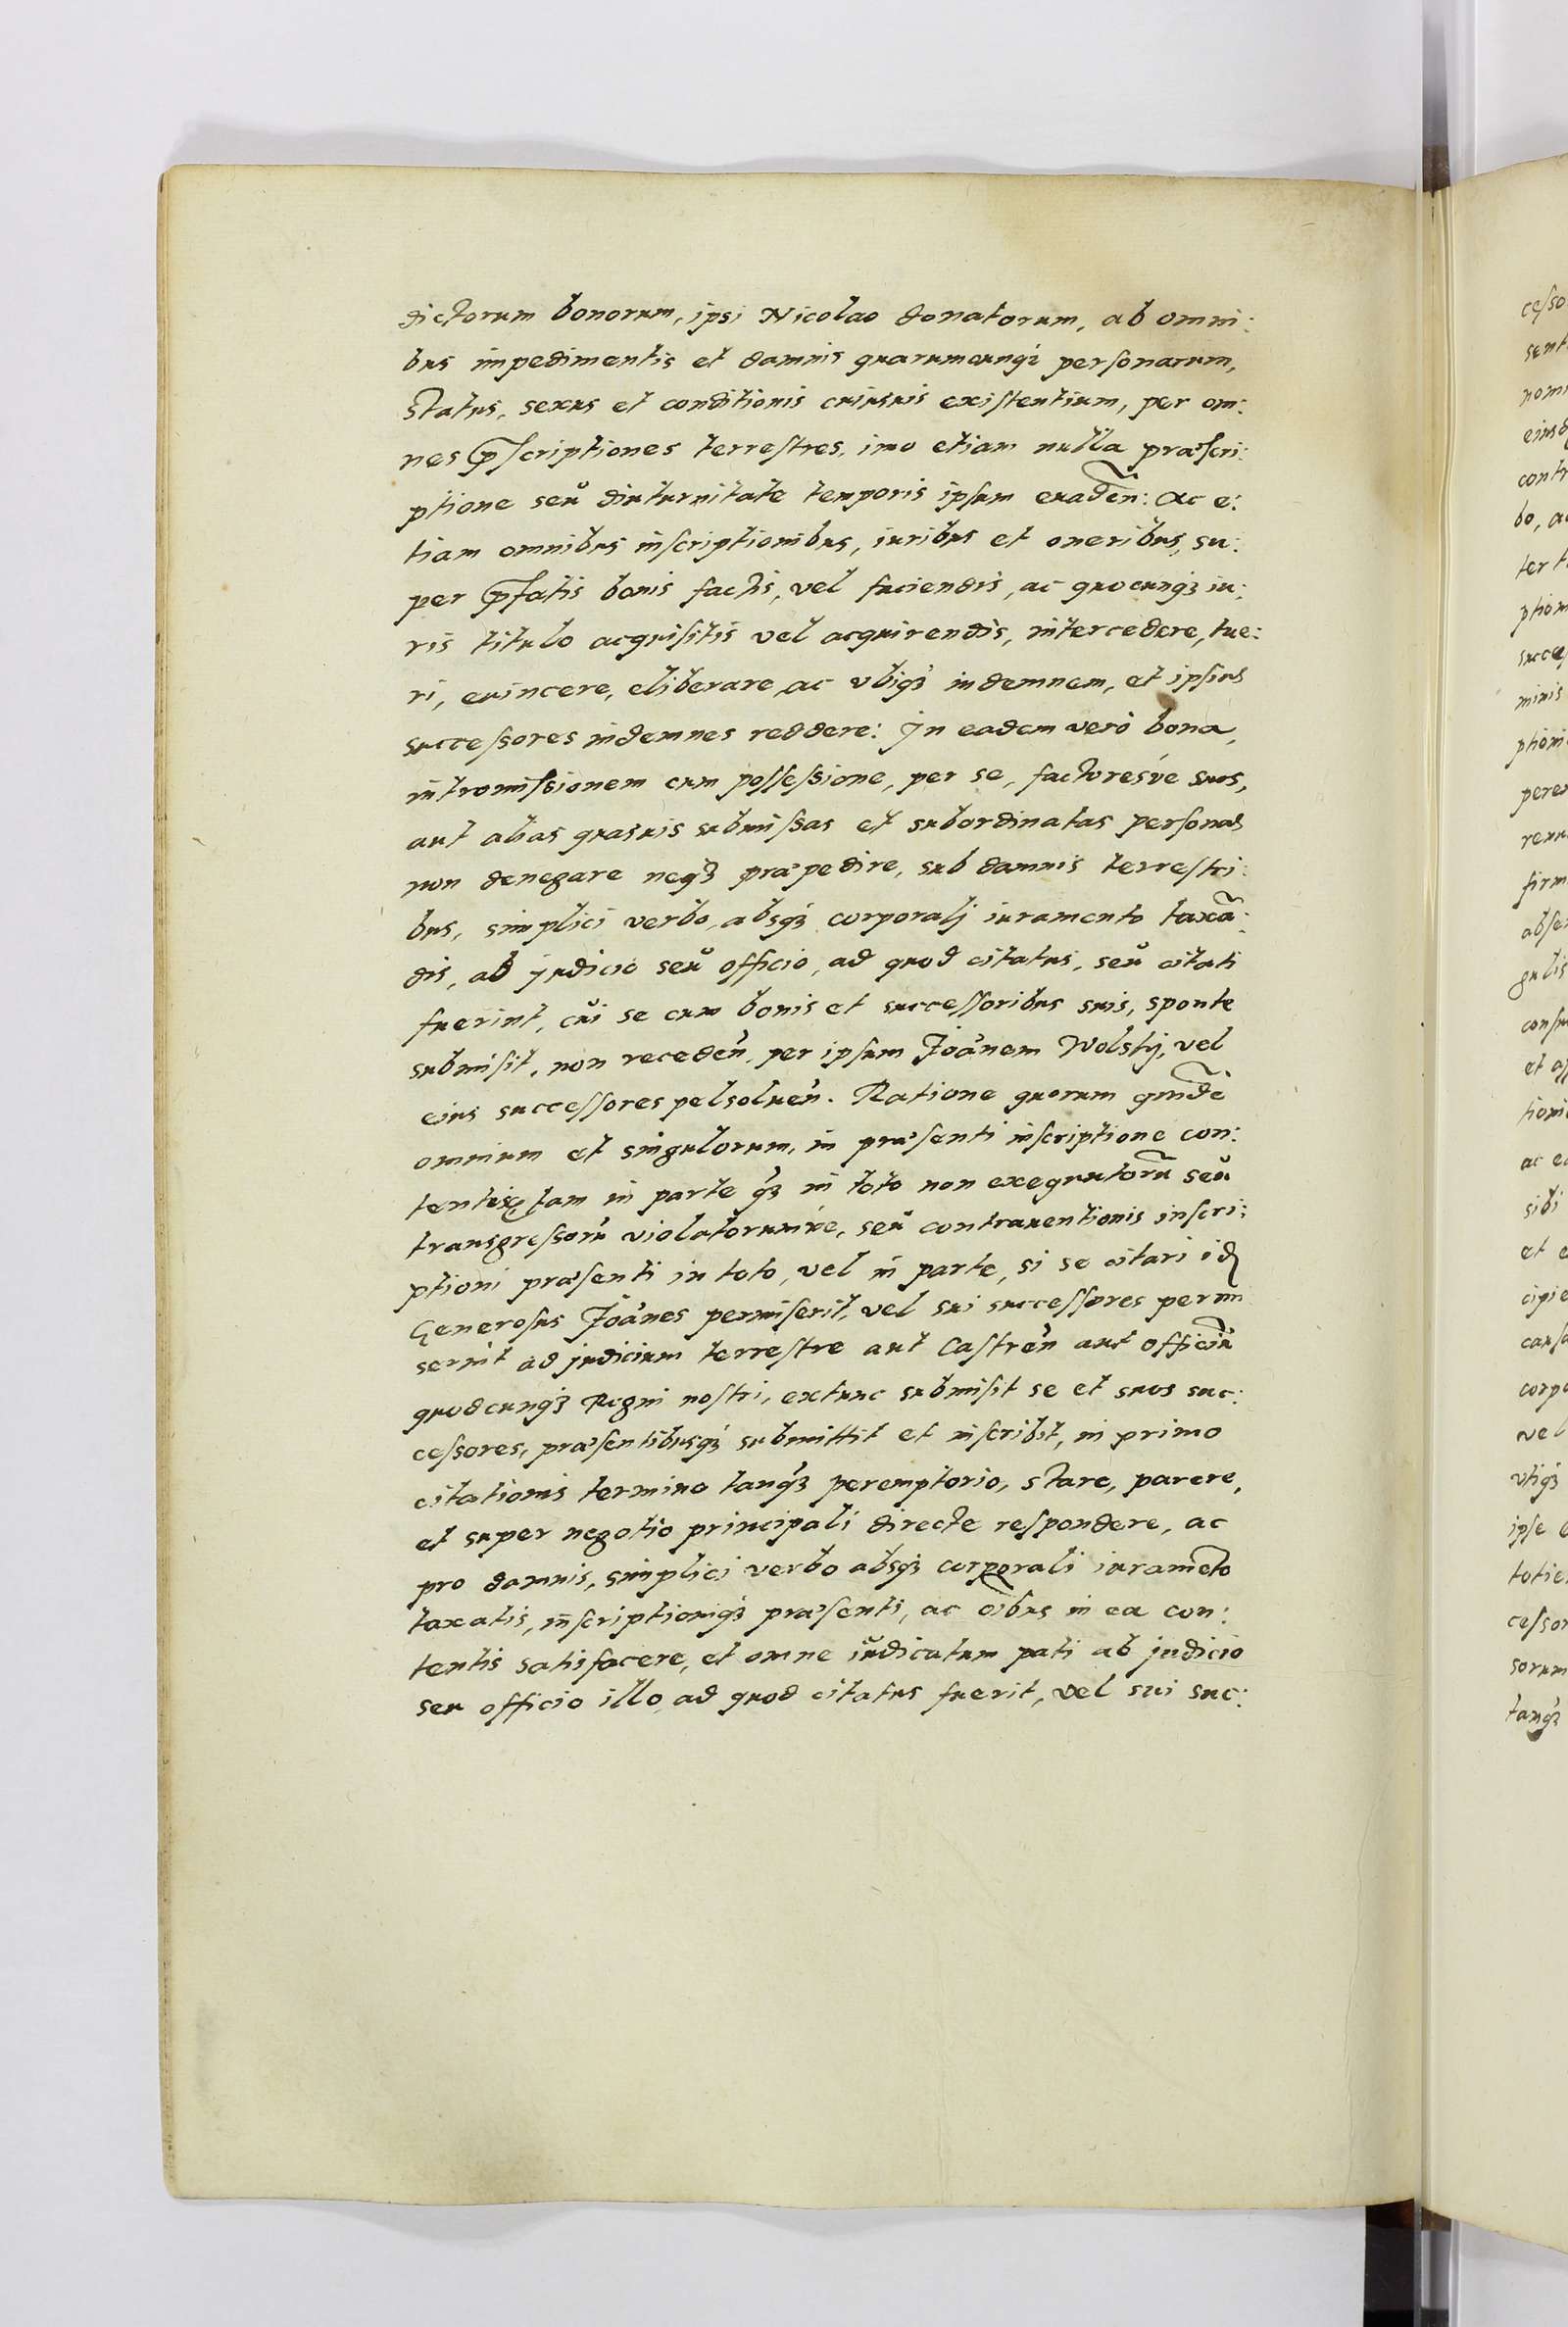 dictorum bonorum, ipsi Nicolao donatorum, ab omni:
bus impedimentis et damnis quarumcunq3 personarum,
status, sexus et conditionis cuiusuis existentium, per om:
nes p̃scriptiones terrestres, imo etiam nulla præscri:
ptione seŭ diuturnitate temporis ipsum euaden̄: ac e:
tiam omnibus inscriptionibus, iuribus et oneribus, su:
per p̃fatis bonis factis, vel faciendis, ac quocunq3 iu:
ris titulo acquisitis vel acquirendis, intercedere, tue:
ri, euincere, eliberare, ac vbiq3 indemnem, et ipsius
successores indemnes reddere: In eadem verò bona,
intromissionem cum possessione, per se, factoresúe suos,
aut alias quasuis submissas et subordinatas personas
non denegare neq3 præpedire, sub damnis terrestri:
bus, simplici verbo, absq3 corporalj iuramento taxã:
dis, ab judicio seŭ officio, ad quod citatus, seŭ citati
fuerint, cŭi se cum bonis et successoribus suis, sponte
submisit, non receden̄, per ipsum Joãnem Wolskj, vel
eius successores pelsoluen̄. Ratione quorum quidẽ
omnium et singulorum, in præsenti inscriptione con:
tentis, tam in parte q̃3 in toto non exequutorũ seŭ
transgressorũ violatorumúe, seŭ contrauentionis inscri:
ptioni præsenti in toto, vel in parte, si se citari id
Generosus Joãnes permiserit, vel sui successores permi
serint ad judicium terrestre aut Castren̄ aut officiũ
quodcunq3 Regni nostri, extunc submisit se et suos suc:
cessores, præsentibusq3 submittit et inscribit, in primo
citationis termino tanq̃3 peremptorio, stare, parere,
et super negotio principali directe respondere, ac
pro damnis, simplici verbo absq3 corporali iuramẽto
taxatis, inscriptioniq3 præsenti, ac oĩbus in ea con:
tentis satisfacere, et omne iŭdicatum pati ab judicio
seu officio illo, ad quod citatus fuerit, vel sui suc: